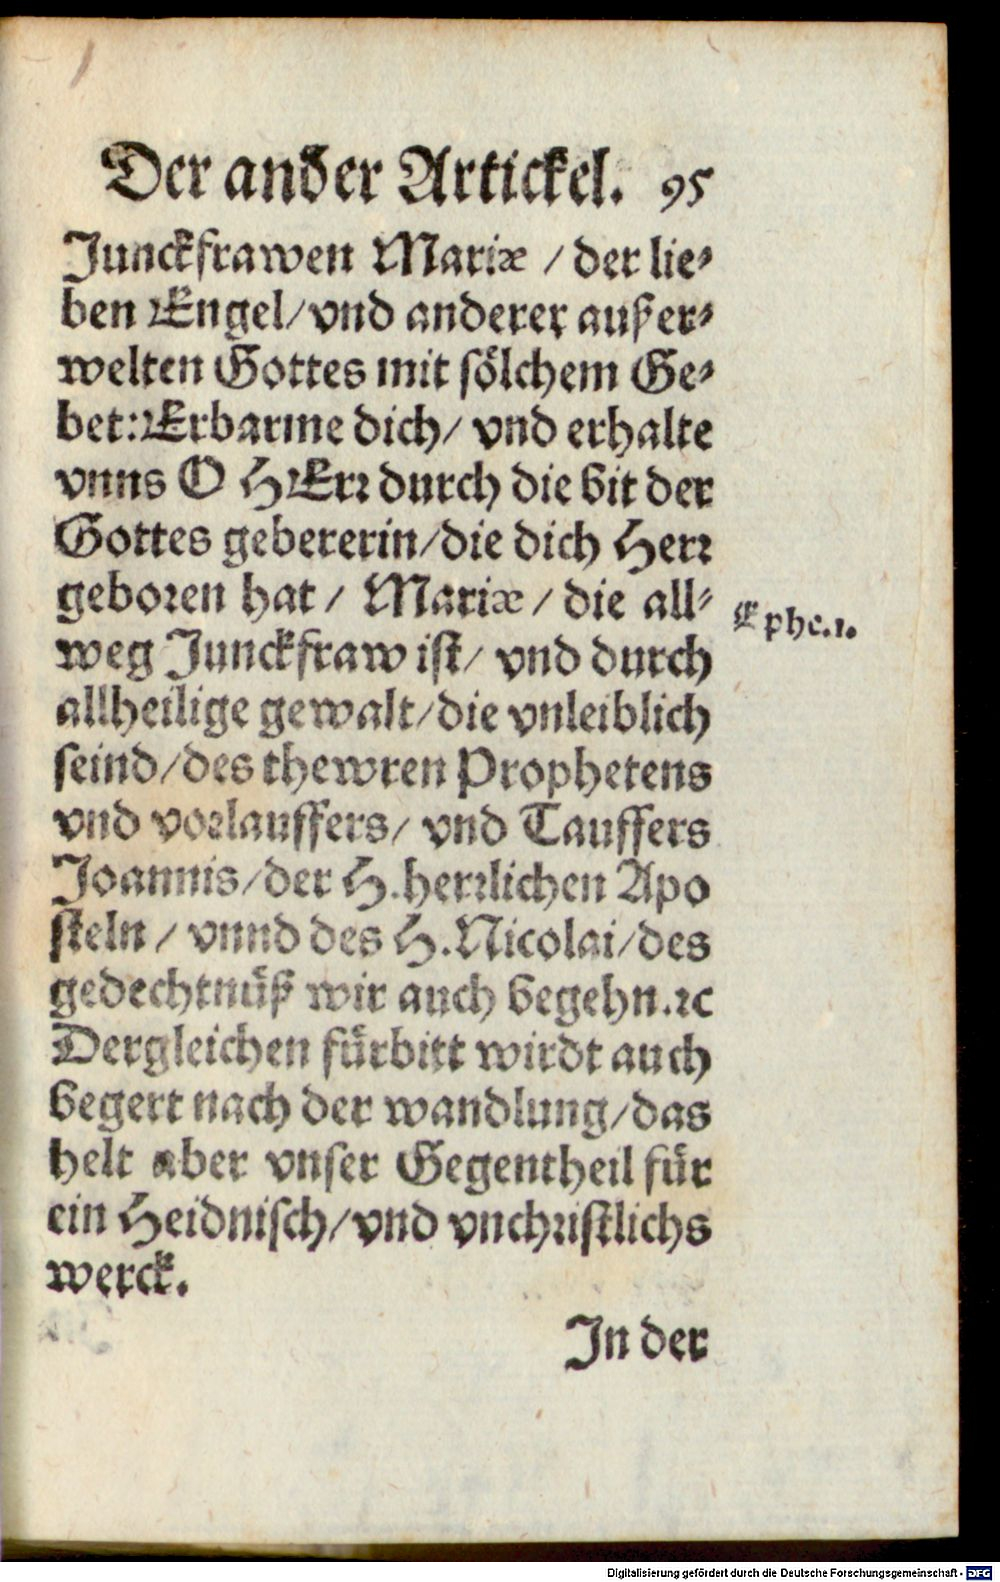 Der ander Artickel. 95
Junckfrawen Mariæ / der lie-
ben Engel/ vnd anderer außer-
welten Gottes mit sölchem Ge-
bet: Erbarme dich/ vnd erhalte
vnns O HErr durch die bit der
Gottes gebererin/die dich Herr
geboren hat / Mariæ / die all-
Ephe.1.
weg Junckfraw ist/ vnd durch
allheilige gewalt/die vnleiblich
seind/des thewren Prophetens
vnd vorlauffers/ vnd Tauffers
Joannis/der H.herrlichen Apo
steln / vnnd des H.Nicolai/des
gedechtnüß wir auch begehn.ꝛc
Dergleichen fürbitt wirdt auch
begert nach der wandlung/das
helt aber vnser Gegentheil für
ein Heidnisch/vnd vnchristlichs
werck.
In der
Digitalisierung gefördert durch die Deutsche Forschungsgemeinschaft - DFG